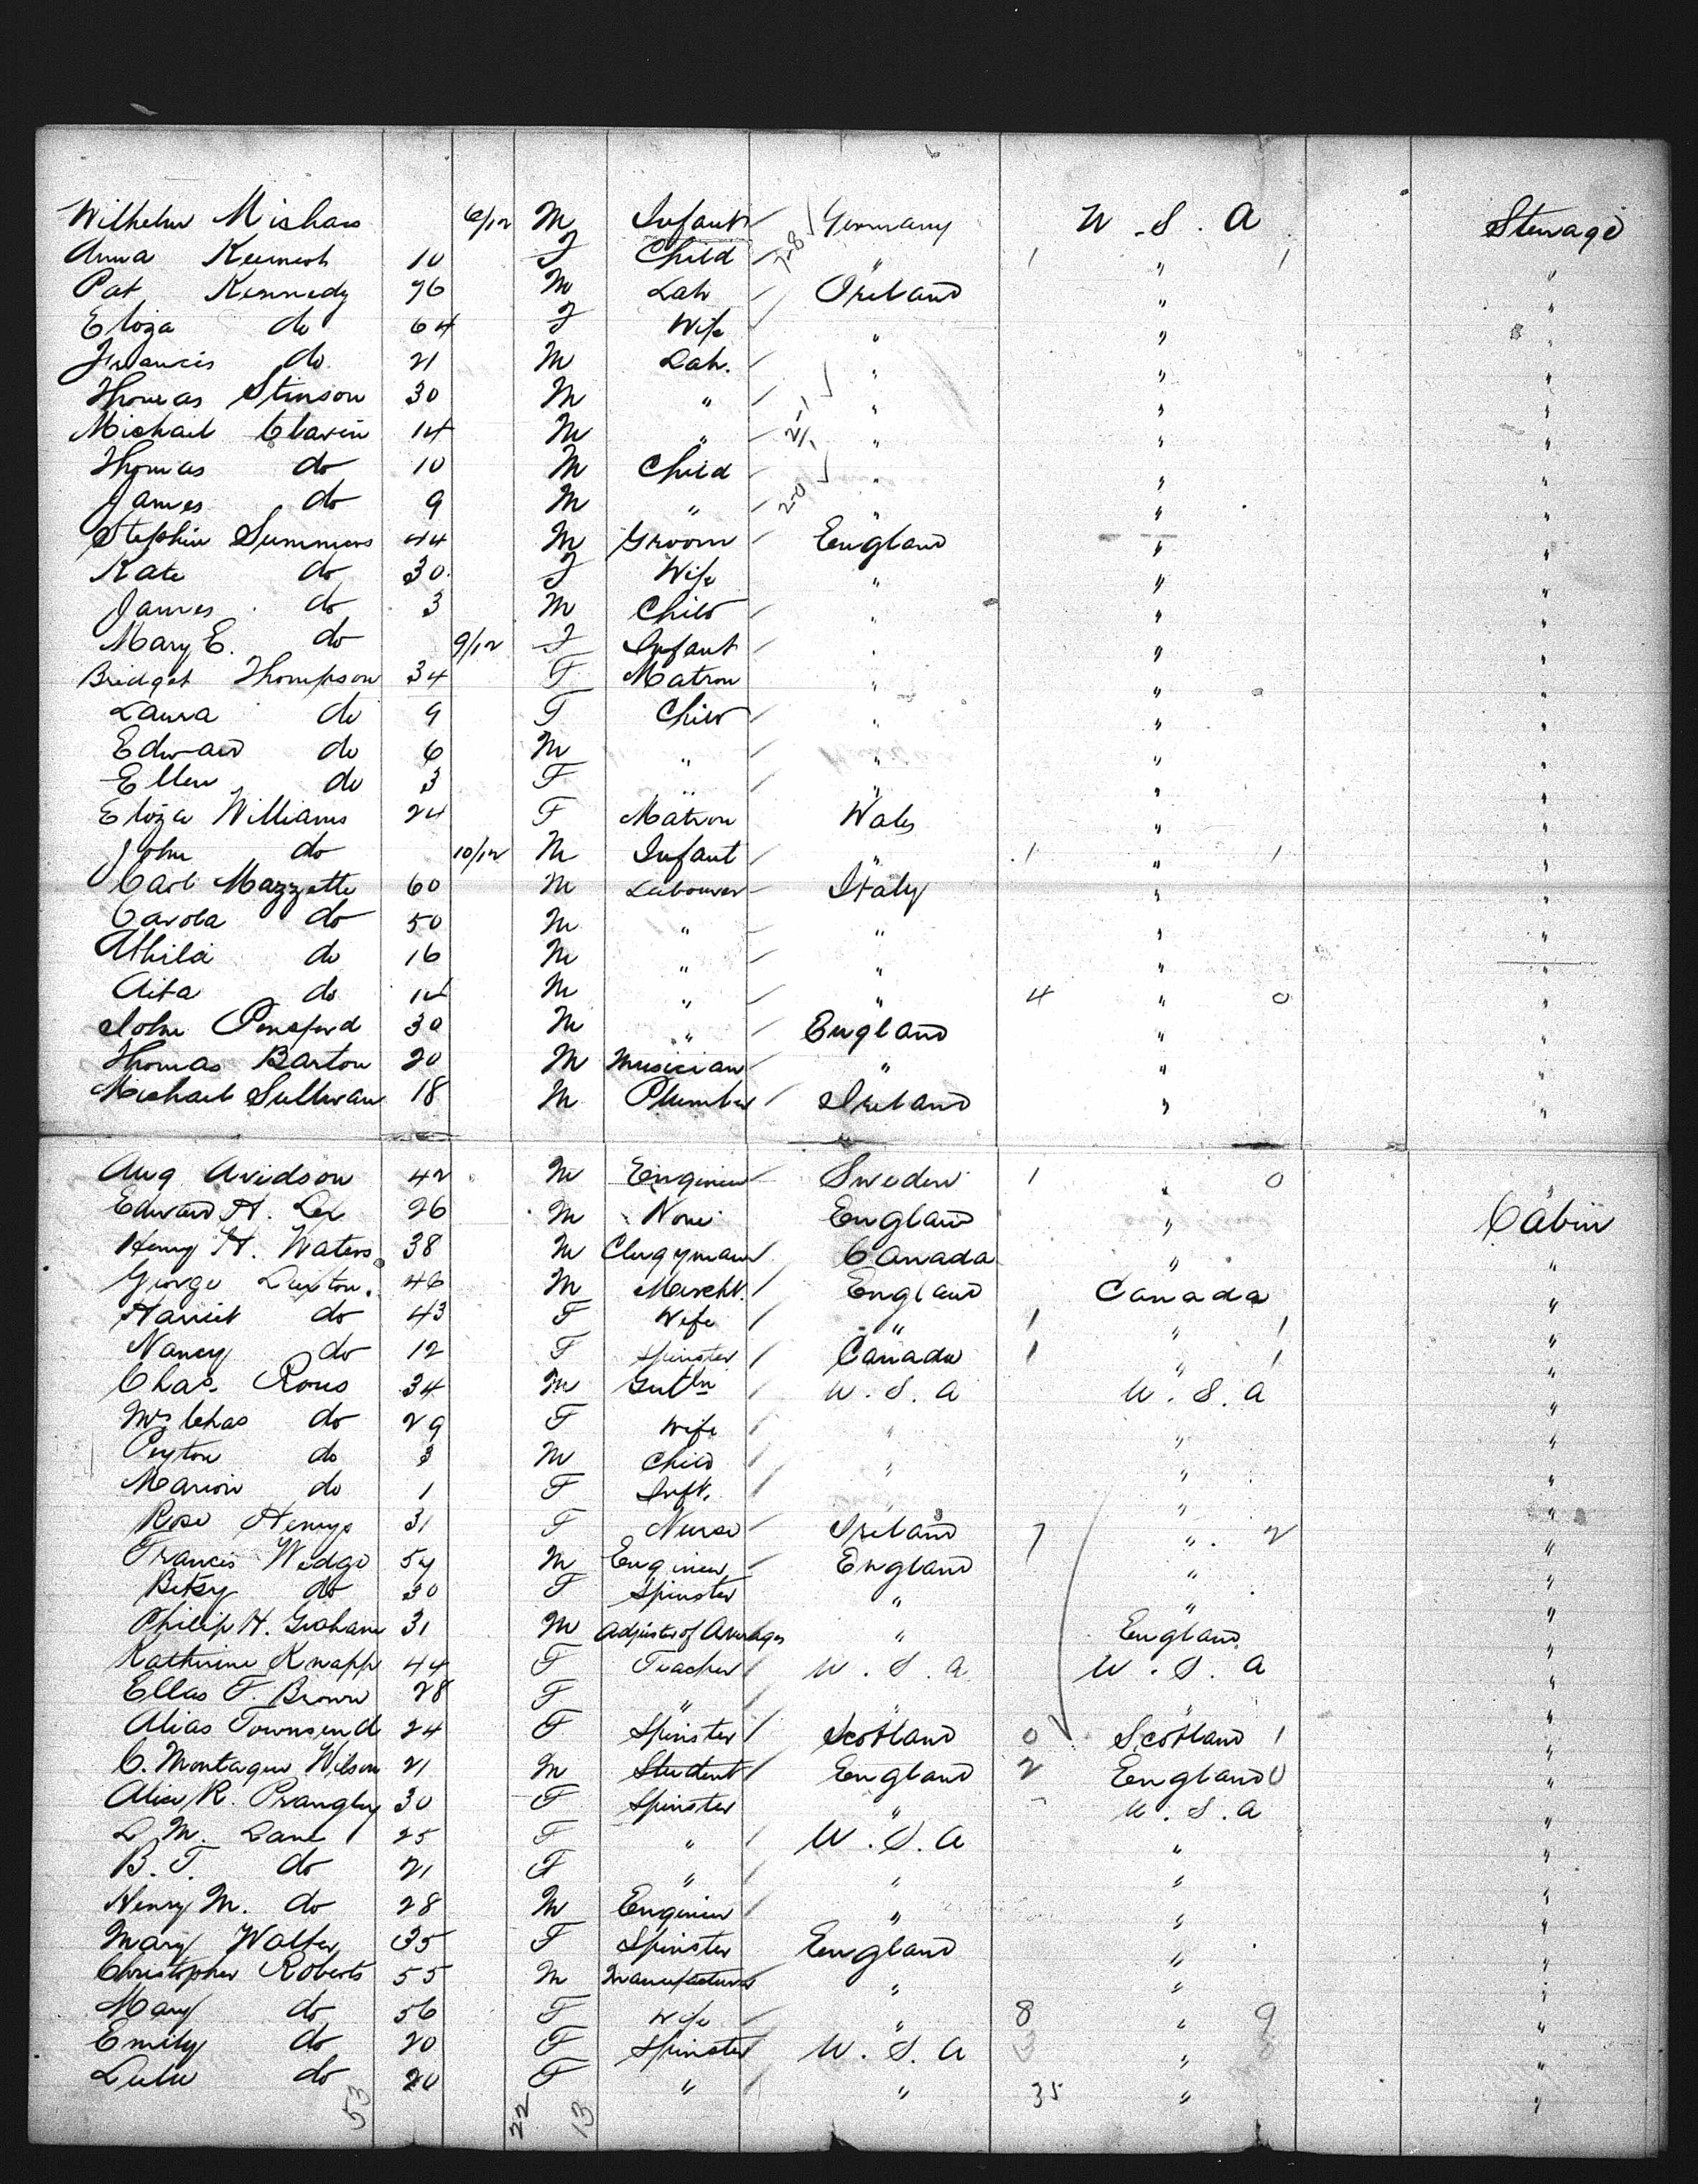 Wilhelm Mishaw 6/12 M Infant Germany U.S.A. Steerage
Anna 10 F Child " 1 " 1 "
Pat Kennedy 76 M Lab Ireland " "
Eliza do 64 F Wife " " "
Francis do 21 M Lab. " " "
Thomas Stinson 30 M " " " "
Michael Clavin 14 M " " " "
Thomas do 10 M Child " " "
James do 9 M " " " "
Stephen Summers 44 M Groom England " "
Kate do 30 F Wife " " "
James do 3 M Child " " "
Mary E. do 9/12 F Infant " " "
Bridget Thompson 34 F Matron " " "
Laura do 9 F Child " " "
Edward do 6 M " " " "
Ellen do 3 F " " " "
Eliza Williams 24 F Matron Wales " "
John do 10/12 M Infant " 1 " 1 "
Carl Mazzette 60 M Labourer Italy " "
Carola do 50 M " " " "
do 16 M " " " "
Aita do 14 M " " 4 " 0 "
John Ponsford 30 M " England " "
Thomas Barton 20 M Musician " " "
Michael Sullivan 18 M Plumber Ireland " "
Aug Avidson 42 M Engineer Sweden 1 " 0 "
Edward H. Lee 26 M None England " Cabin
Henry H. Waters 38 M Clergyman Canada " "
George Duxton. 46 M Mercht. England Canada "
Harriet do 43 F Wife " 1 " 1 "
Nancy do 12 F Spinster Canada 1 " 1 "
Chas. Rous 34 M Gntln U.S.A U.S.A "
Mrs Chas do 29 F Wife " " "
Peyton do 3 M Child " " "
Marion do 1 F Inft. " " "
Rose Henrys 31 F Nurse Ireland 7 " 2 "
Francis Wedge 54 M Engineer England " "
Betsy do 30 F Spinster " " "
Philip H. Graham 31 M Adjuster of Averages " England "
Katherine Knapp 44 F Teacher U.S.A U.S.A "
Ellas F. Brown 28 F " " " "
Alias Townsend 24 F Spinster Scotland 0 Scotland 1 "
C. Montague Wilson 21 M Student England 2 England 0 "
Alice R. Prangley 30 F Spinster " U.S.A "
L M. Lane 25 F " U.S.A " "
B. T. do 21 F " " " "
Henry M. do 28 M Engineer " " "
Mary Walter 35 F Spinster England " "
Christopher Roberts 55 M Manufacturer " " "
Mary do 56 F Wife " 8 " 9 "
Emily do 20 F Spinster U.S.A 3 " "
Lulu do 20 F " " 35 " "
53 22 13